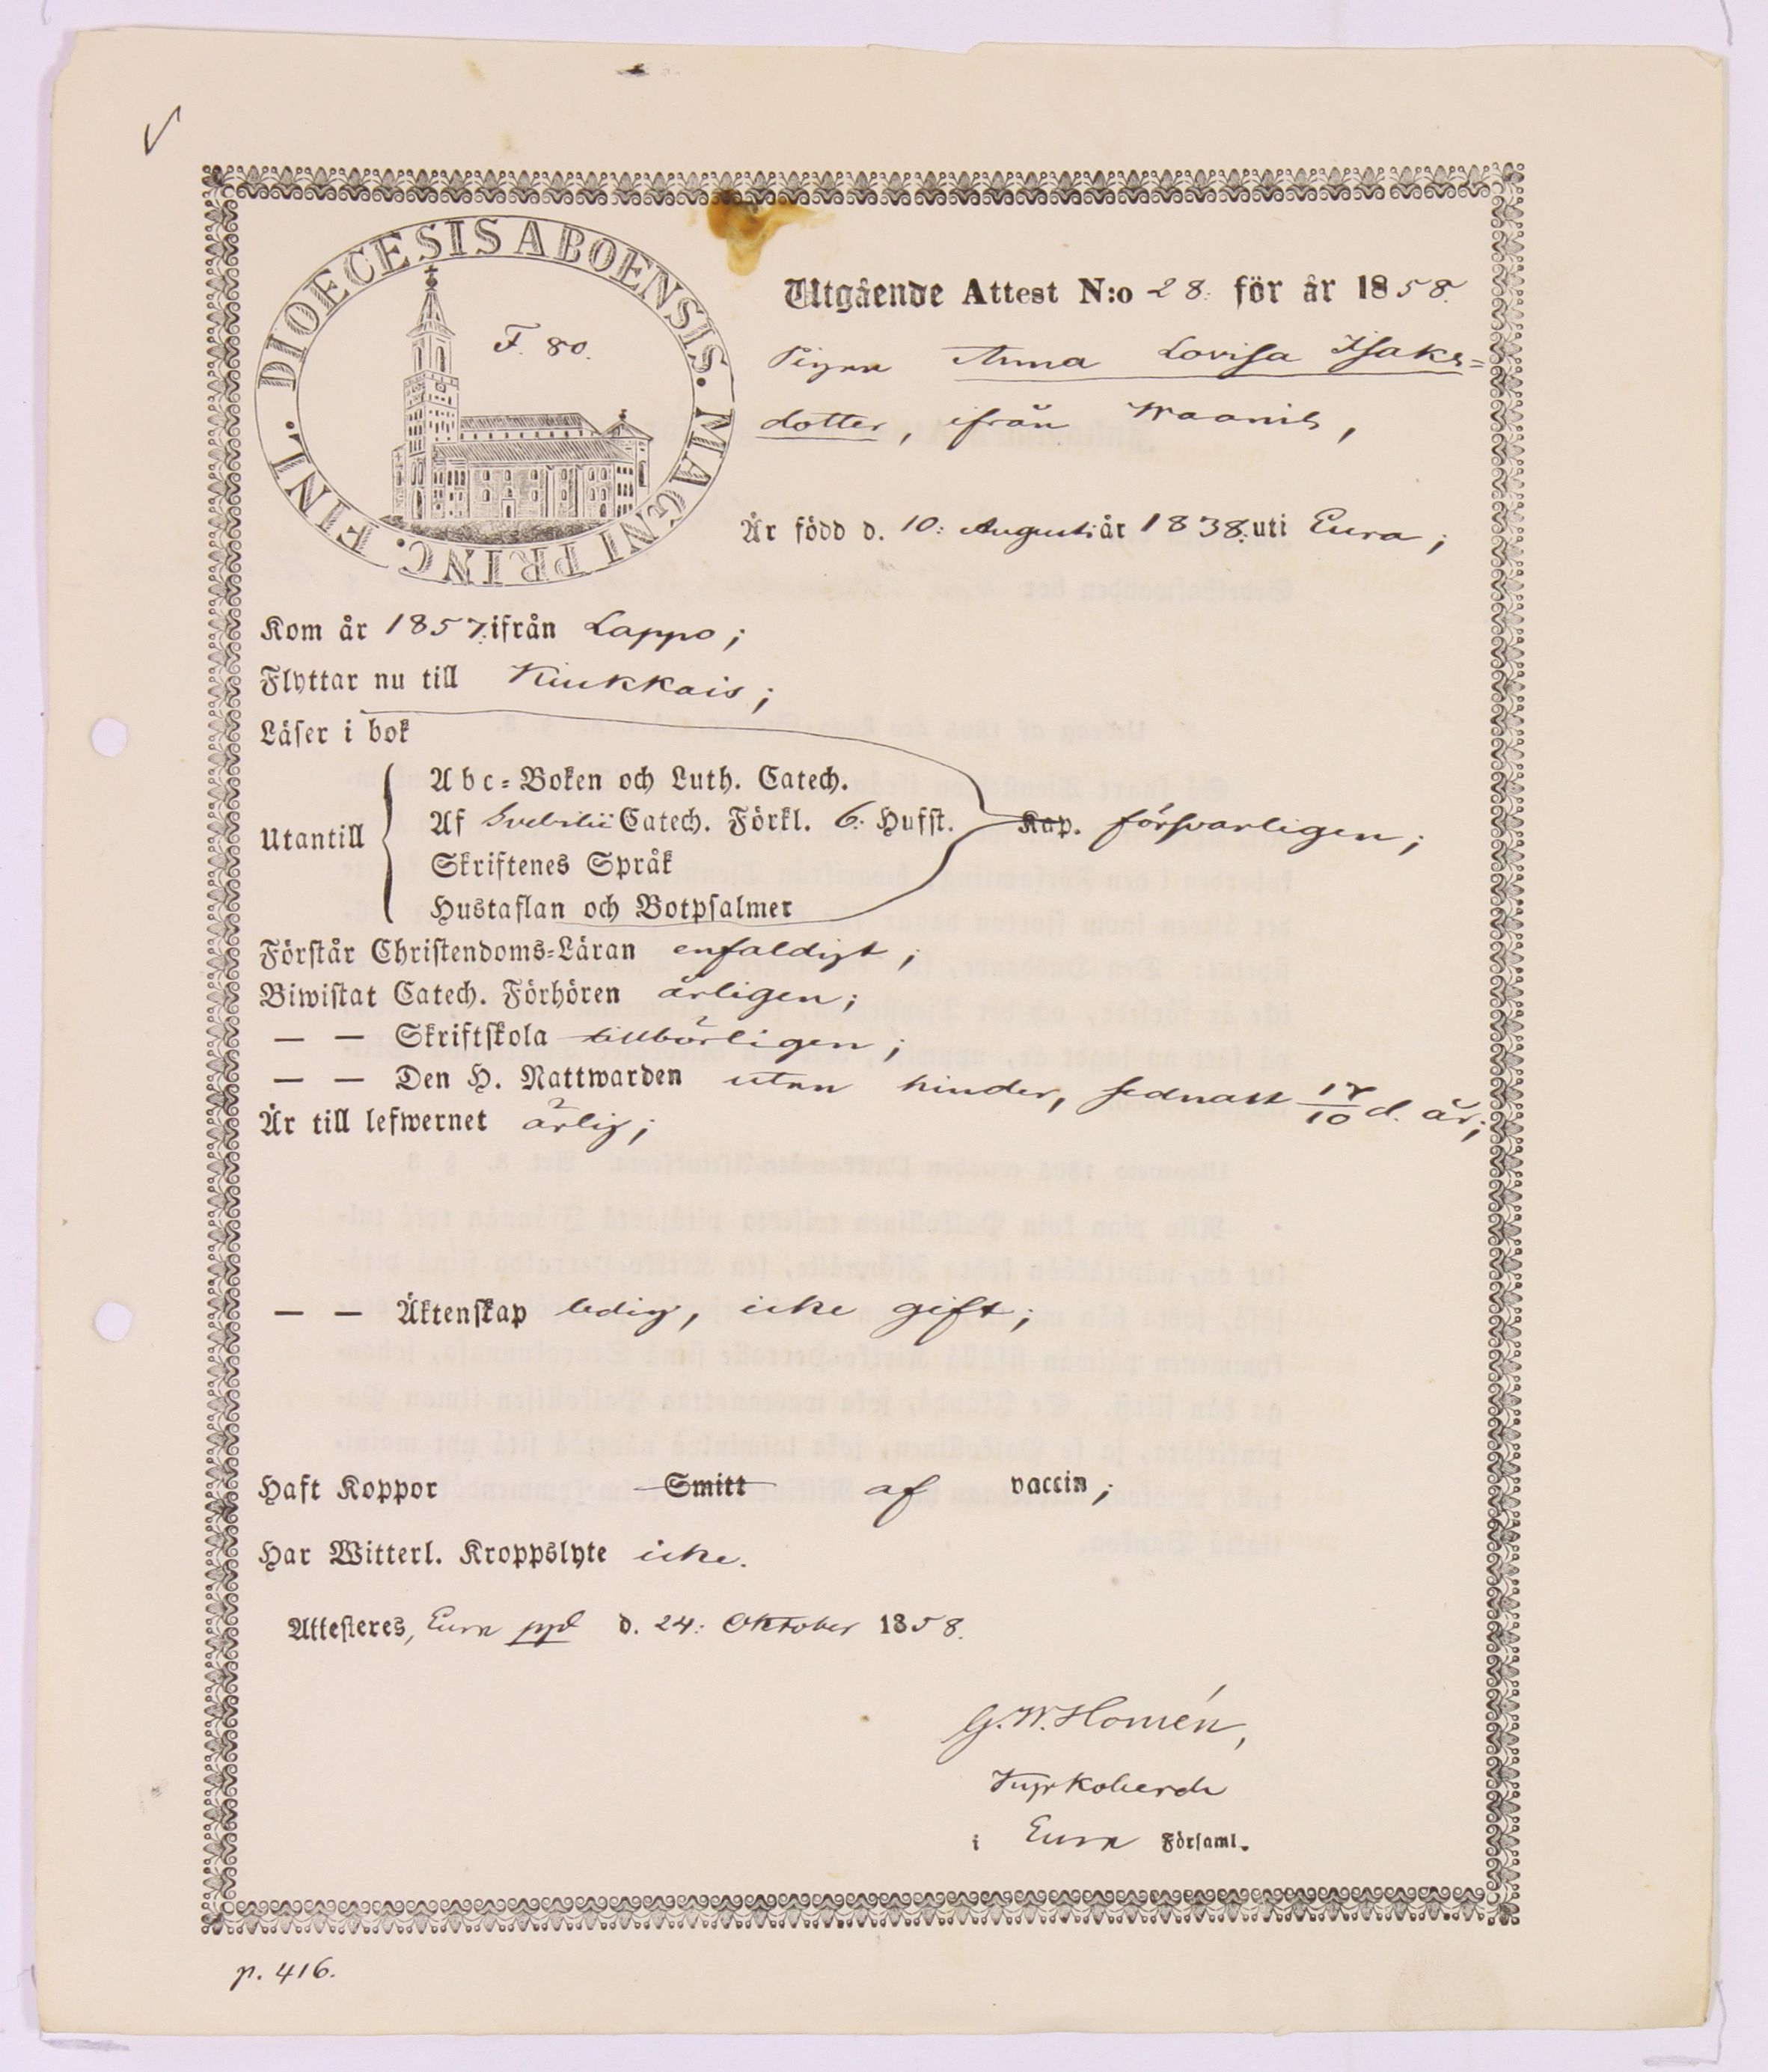 DIOECESIS ABOENSIS. MAGNI PRINC. FINL.
F. 80.
Utgående Attest N:o 28. för år 1858.
Pigan Anna Lovisa Isaks=
dotter, ifrån Waanis,
Är född d. 10: Augusti år 1838. uti Eura;
Kom år 1857. ifrån Lappo;
Flyttar nu till Kiukkais;
Läser i bok
Abc=Boken och Luth. Catech.
Utantill Af Svebilii Catech. Förkl. 6: Hufst. Kap. försvarligen;
Skriftenes Språk
Hustaflan och Botpsalmer
Förstår Christendoms=Läran enfaldigt;
Biwistat Catech. Förhören årligen;
— — Skriftskola tillbörligen;
— — Den H. Nattwarden utan hinder, sednast 17/10 d. år;
Är till lefwernet ärlig;
— — Äktenskap ledig, icke gift;
Haft Koppor Smitt af vaccin;
Har Witterl. Kroppslyte icke.
Attesteres, Eura d. 24: Oktober 1858.
G. W. Homén,
Kyrkoherde
i Eura Församl.
p. 416.